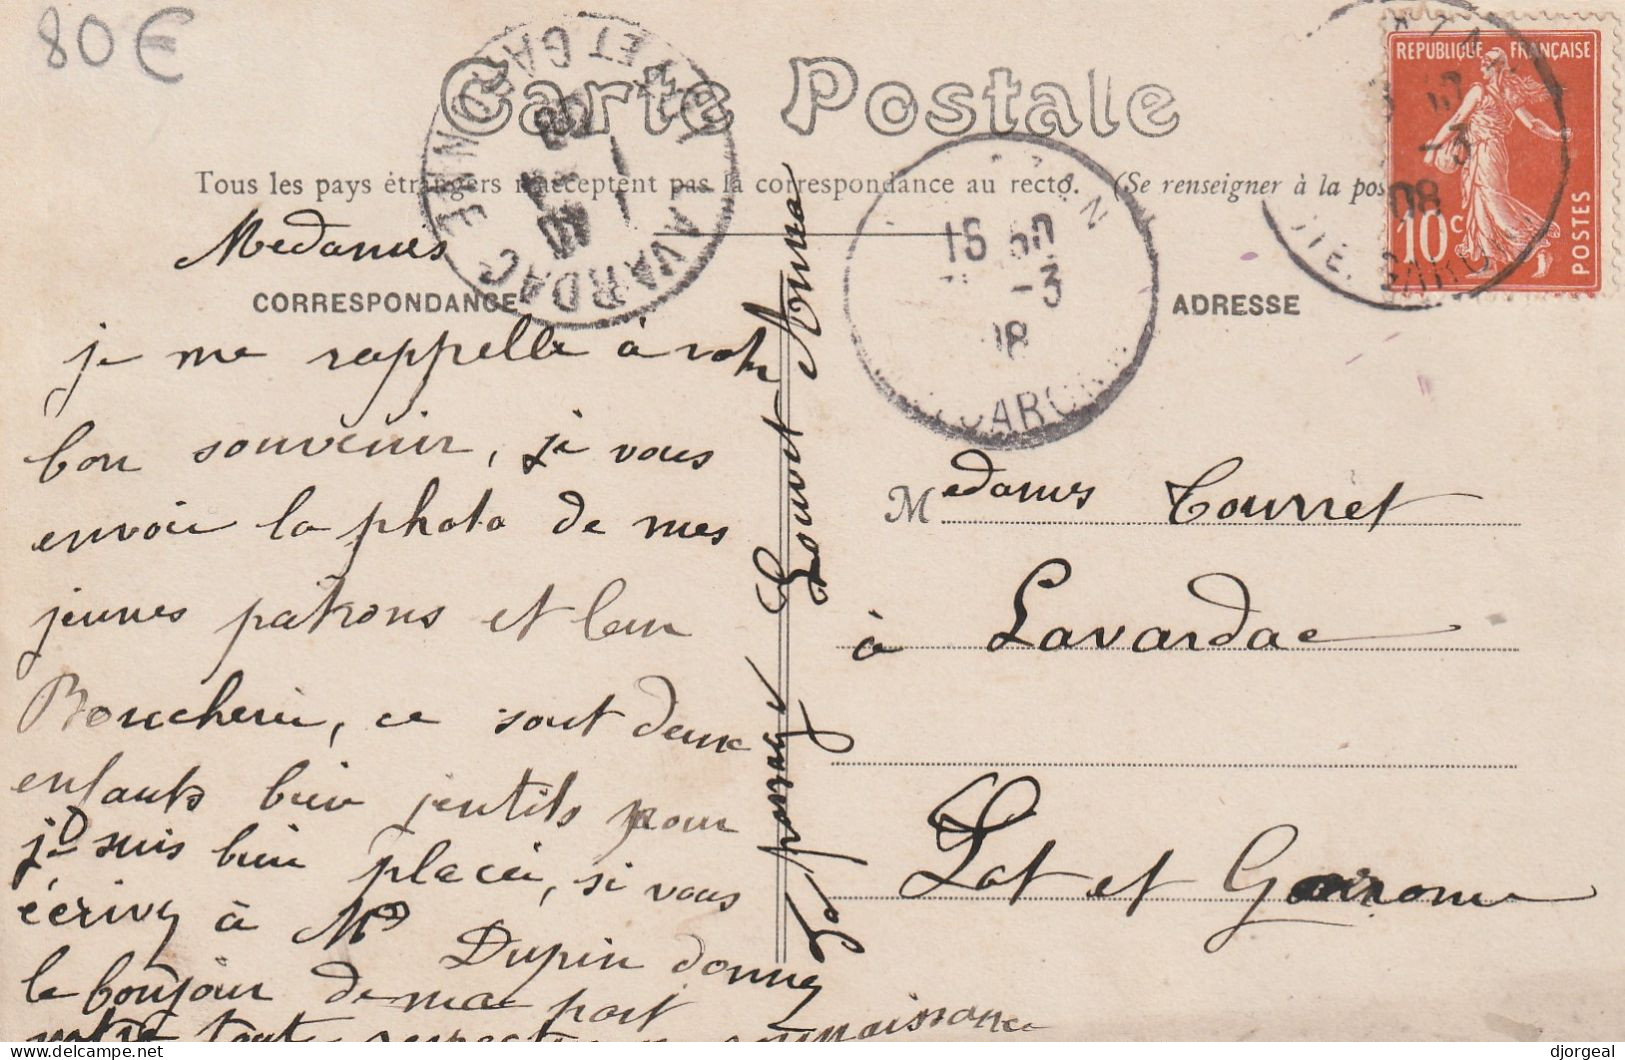 80 €
Carte Postale
Tous les pays étrangers n'acceptent pas la correspondance au recto. (Se renseigner à la pos
REPUBLIQUE FRANÇAISE
10c
POSTES
LAVARDAC
LOT ET GAR
16
-3
08
GARONNE
CORRESPONDANCE
ADRESSE
Medames
je me rappelle à votre
bon souvenir, je vous
envoie la photo de mes
jeunes patrons et leur
Boucherie, ce sont deux
enfants bien jentils pour
je suis bien placée, si vous
écrivez à Md Dupin donnez
le bonjour de ma part
votre toute respectueuse connaissance
Anna
Medames Tourret
à Lavardac
Lot et Garonne
djorgeal